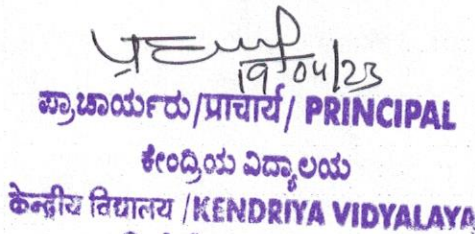 19/04/23
ಪ್ರಾಚಾರ್ಯರು/प्राचार्य/ PRINCIPAL
ಕೇಂದ್ರಿಯ ವಿದ್ಯಾಲಯ
केन्द्रीय विद्यालय /KENDRIYA VIDYALAYA